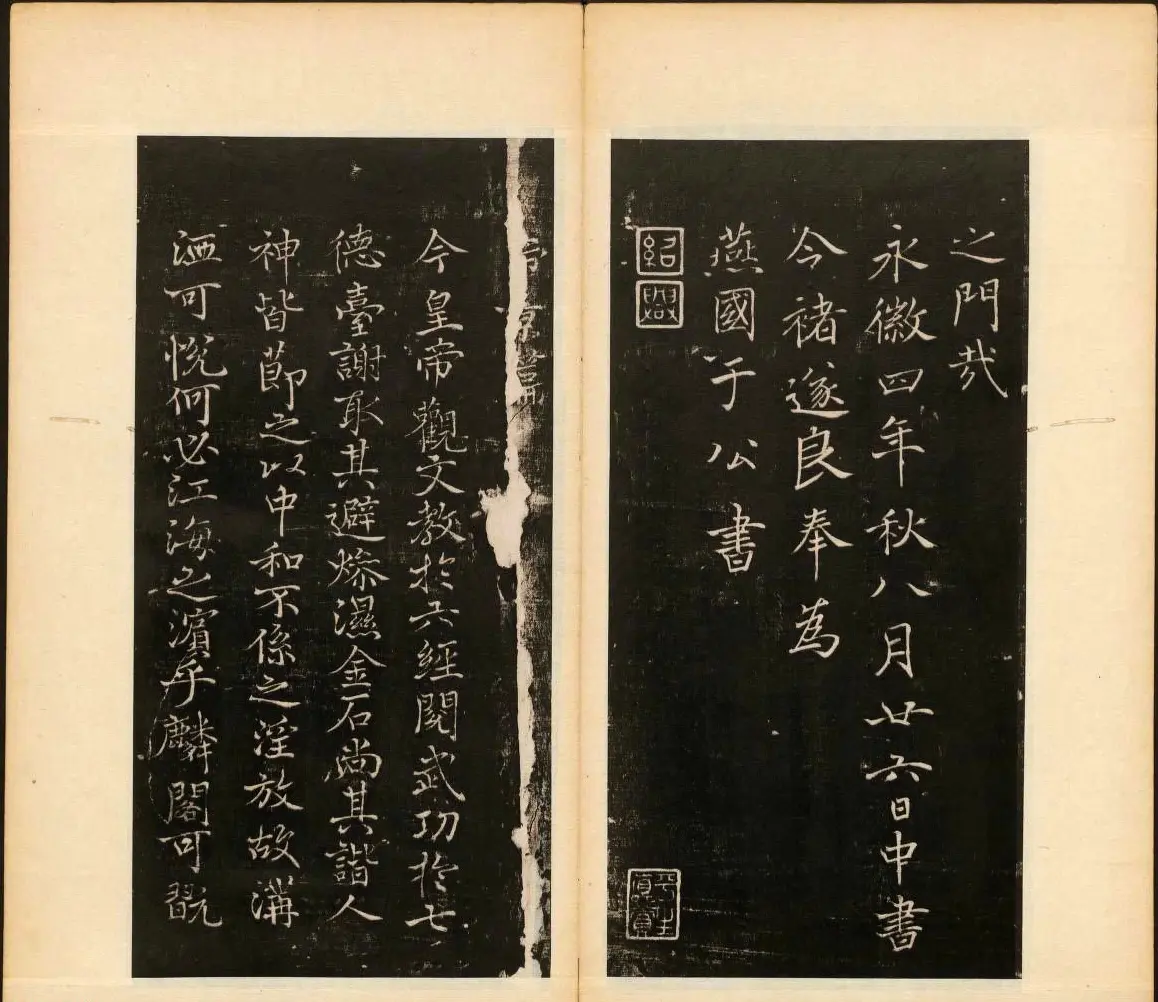 之門哉
永徽四年秋八月廿六日中書
今褚遂良奉為
燕國于公書
紹興
帝京篇
今皇帝觀文教於六經閱武功於七
德臺謝取其避燥濕金石尚其諧人
神皆節之以中和不係之淫放故溝
洒可悅何必江海之濱乎麟閣可翫